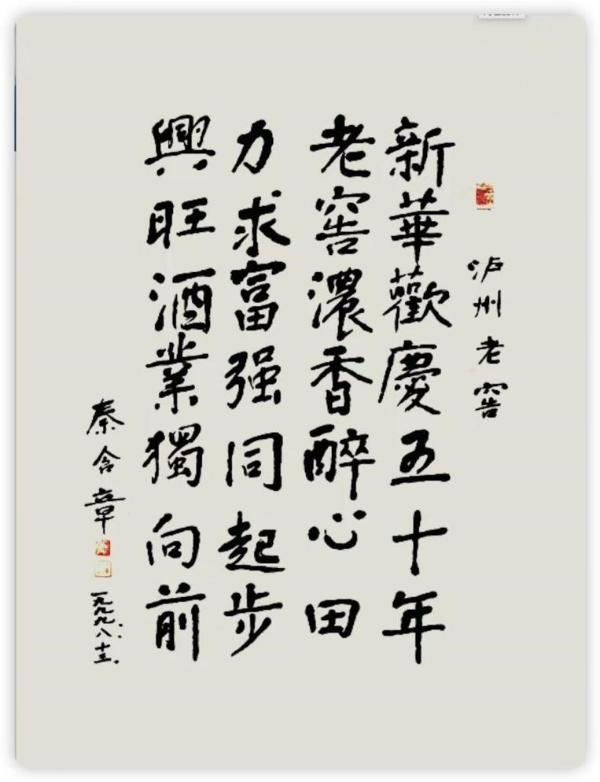 泸州老窖
新華歡慶五十年
老窖濃香醉心田
力求富强同起步
興旺酒業獨向前
秦含章
一九九九.八.十三.